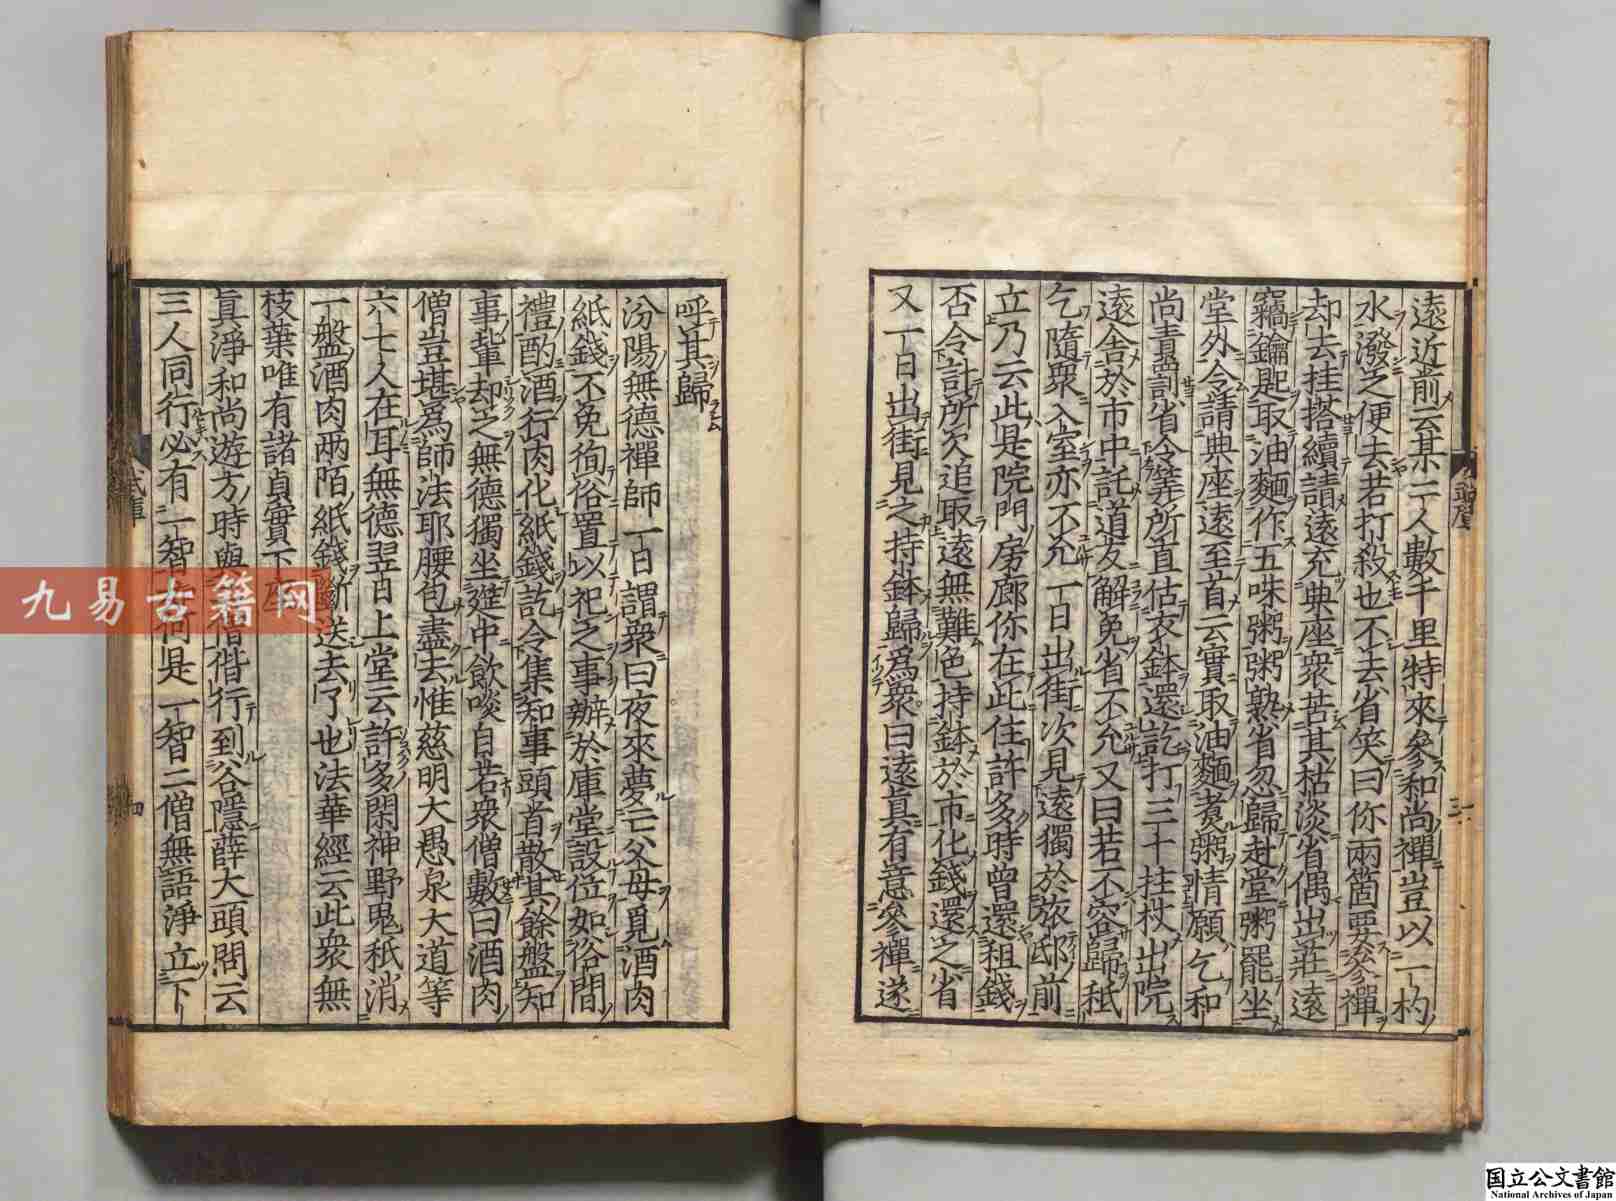 遠近前云某二人數千里特來參和尚禪豈以一杓
水潑之便去若打殺也不去省笑曰你兩箇要參禪
却去挂搭續請遠充典座衆苦其枯淡省偶出莊遠
竊鑰匙取油麵作五味粥粥熟省忽歸赴堂粥罷坐
堂外令請典座遠至首云實取油麵煮粥情願乞和
尚責罰省令筭所直估衣鉢還訖打三十拄杖出院
遠舍於市中託道友解免省不允又曰若不容歸秖
乞隨衆入室亦不允一日出街次見遠獨於旅邸前
立乃云此是院門房廊你在此住許多時曾還租錢
否令計所欠追取遠無難色持鉢於市化錢還之省
又一日出街見之持鉢歸爲衆曰遠真有意參禪遂
呼其歸
汾陽無德禪師一日謂衆曰夜來夢亡父母覓酒肉
紙錢不免徇俗置以祀之事辦於庫堂設位如俗間
禮酌酒行肉化紙錢訖令集知事頭首散其餘盤知
事輩却之無德獨坐筵中飲啖自若衆僧數曰酒肉
僧豈堪爲師法耶腰包盡去惟慈明大愚泉大道等
六七人在耳無德翌日上堂云許多閑神野鬼秖消
一盤酒肉兩陌紙錢斷送去了也法華經云此衆無
枝葉唯有諸貞實下座
真淨和尚遊方時與二僧偕行到谷隱薛大頭問云
三人同行必有一智如何是一智二僧無語淨立下
武庫
四
三
九易古籍网
国立公文書館
National Archives of Japan